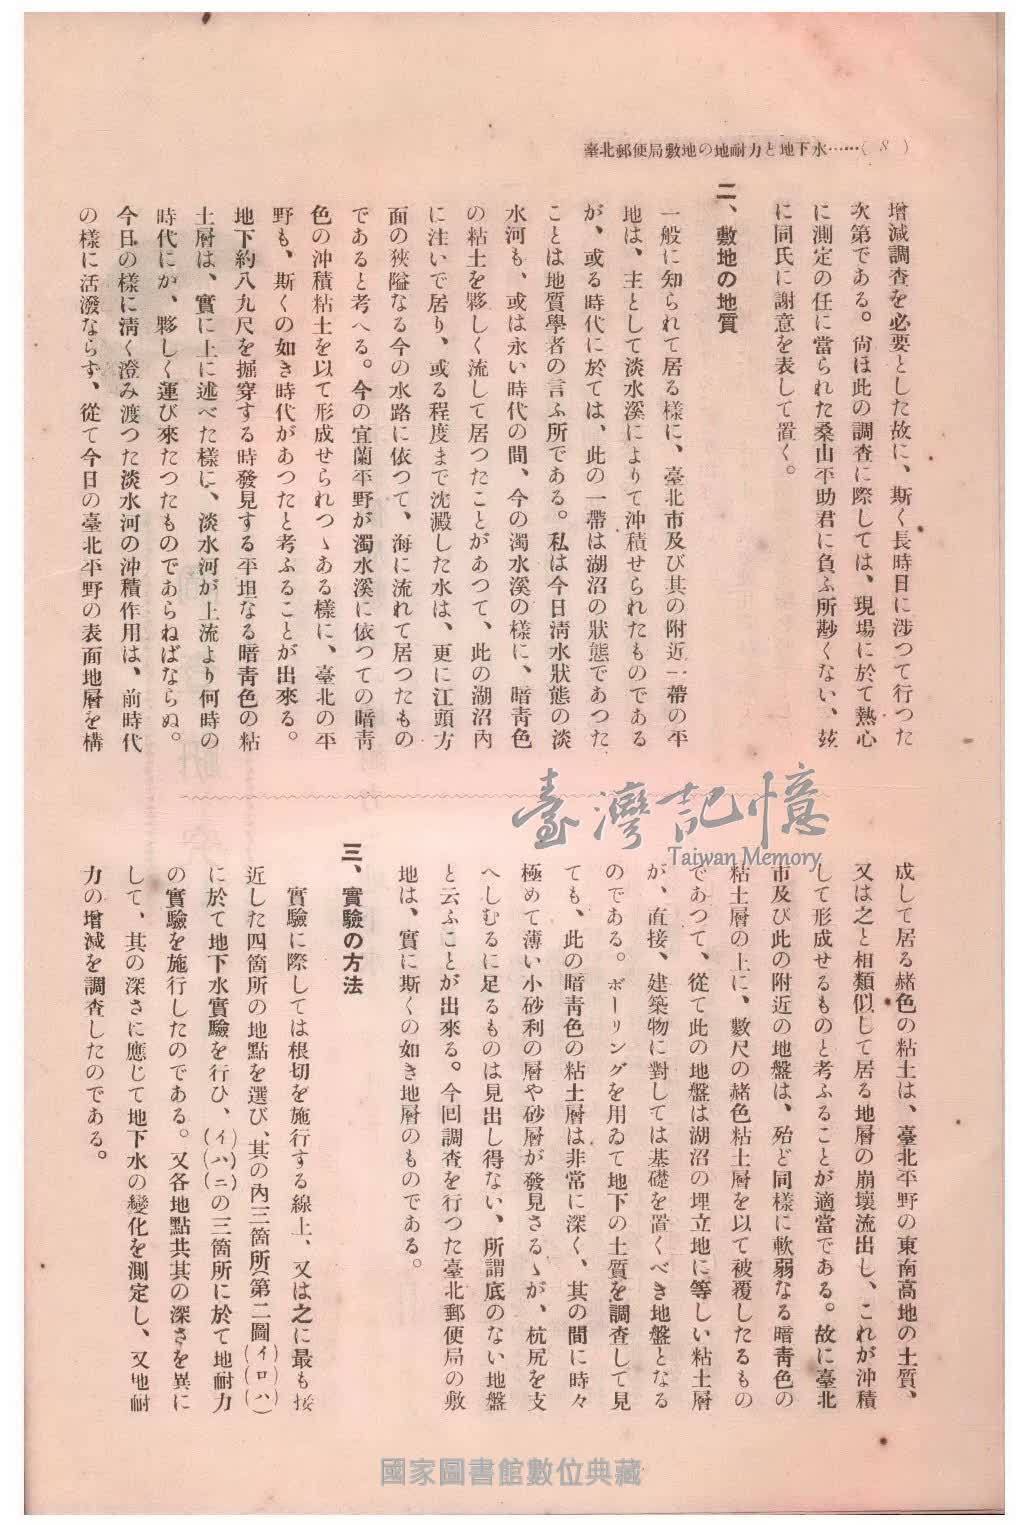 臺北郵便局敷地の地耐力と地下水……( 8 )
增減調査を必要とした故に、斯く長時日に渉つて行つた
次第である。尙ほ此の調査に際しては、現場に於て熱心
に測定の任に當られた桑山平助君に負ふ所尠くない、玆
に同氏に謝意を表して置く。
二、敷地の地質
一般に知られて居る樣に、臺北市及び其の附近一帶の平
地は、主として淡水溪によりて沖積せられたものである
が、或る時代に於ては、此の一帶は湖沼の狀態であつた
ことは地質學者の言ふ所である。私は今日淸水狀態の淡
水河も、或は永い時代の間、今の濁水溪の樣に、暗靑色
の粘土を夥しく流して居つたことがあつて、此の湖沼內
に注いで居り、或る程度まで沈澱した水は、更に江頭方
面の狹隘なる今の水路に依つて、海に流れて居つたもの
であると考へる。今の宜蘭平野が濁水溪に依つての暗靑
色の沖積粘土を以て形成せられつゝある樣に、臺北の平
野も、斯くの如き時代があつたと考ふることが出來る。
地下約八九尺を掘穿する時發見する平坦なる暗靑色の粘
土層は、實に上に述べた樣に、淡水河が上流より何時の
時代にか、夥しく運び來たつたものであらねばならぬ。
今日の樣に淸く澄み渡つた淡水河の沖積作用は、前時代
の樣に活潑ならず、從て今日の臺北平野の表面地層を構
成して居る赭色の粘土は、臺北平野の東南高地の土質、
又は之と相類似して居る地層の崩壞流出し、これが沖積
して形成せるものと考ふることが適當である。故に臺北
市及び此の附近の地盤は、殆ど同樣に軟弱なる暗靑色の
粘土層の上に、數尺の赭色粘土層を以て被覆したるもの
であつて、從て此の地盤は湖沼の埋立地に等しい粘土層
が、直接、建築物に對しては基礎を置くべき地盤となる
のである。ボーリングを用ゐて地下の土質を調査して見
ても、此の暗靑色の粘土層は非常に深く、其の間に時々
極めて薄い小砂利の層や砂層が發見さるゝが、杭尻を支
へしむるに足るものは見出し得ない、所謂底のない地盤
と云ふことが出來る。今回調査を行つた臺北郵便局の敷
地は、實に斯くの如き地層のものである。
三、實驗の方法
實驗に際しては根切を施行する線上、又は之に最も接
近した四箇所の地點を選び、其の內三箇所(第二圖(イ)(ロ)(ハ)
に於て地下水實驗を行ひ、(イ)(ハ)ニの三箇所に於て地耐力
の實驗を施行したのである。又各地點共其の深さを異に
して、其の深さに應じて地下水の變化を測定し、又地耐
力の增減を調査したのである。
臺灣記憶
Taiwan Memory
國家圖書館數位典藏